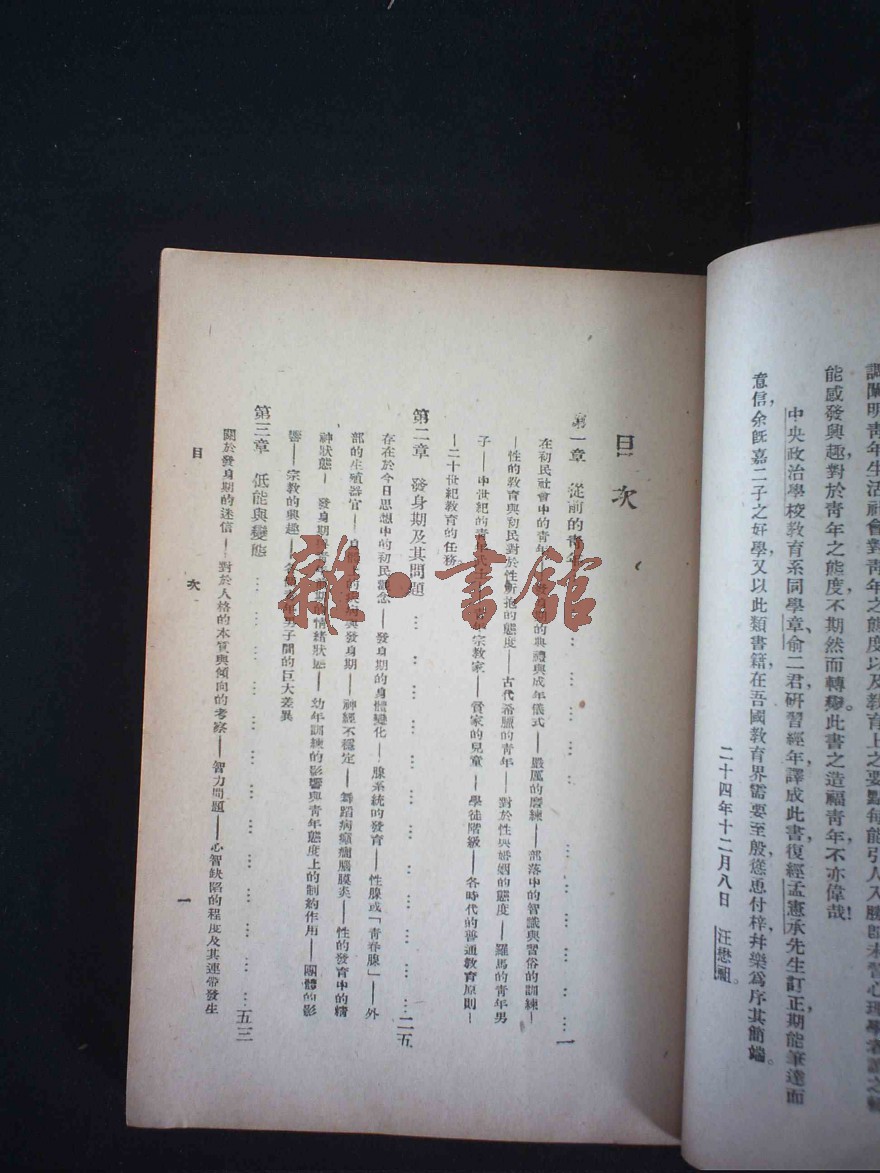 能感發興趣對於靑年之態度不期然而轉變此書之造福靑年不亦偉哉!
中央政治學校敎育系同學章、俞二君研習經年,譯成此書,復經孟憲承先生訂正,期能筆達而
意信,余旣嘉二子之好學,又以此類書籍在吾國敎育界需要至殷,慫恿付梓,幷樂爲序其簡端。
二十四年十二月八日 汪懋祖。
目次
第一章 從前的靑年……一
在初民社會中的靑年——的典禮與成年儀式——嚴厲的磨練——部落中的智識與習俗的訓練—
—性的敎育與初民對於性所抱的態度——古代希臘的靑年——對於性與婚姻的態度——羅馬的靑年男
子——中世紀的靑年宗敎家——貴家的兒童——學徒階級——各時代的普通敎育原則—
—二十世紀敎育的任務
第二章 發身期及其問題……二五
存在於今日思想中的初民觀念——發身期的身體變化——腺系統的發育——性腺或「靑春腺」——外
部的生殖器官——與發身期——神經不穩定——舞蹈病癲癇腦膜炎——性的發育中的精
神狀態——發身期的情緒狀態——幼年訓練的影響與靑年態度上的制約作用——團體的影
響——宗敎的興趣——男子間的巨大差異
第三章 低能與變態……五三
關於發身期的迷信——對於人格的本質與傾向的考察——智力問題——心智缺陷的程度及其連帶發生
目次
一
雜·書館